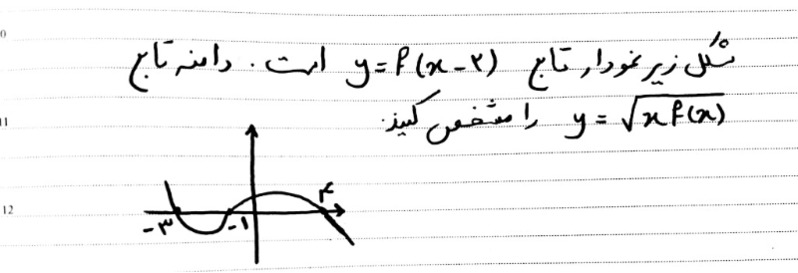 شکل زیر نمودار تابع y=f(x-2) است. دامنه تابع
y=√xf(x) را مشخص کنید.
-۳ -۱ ۴
0
11
12